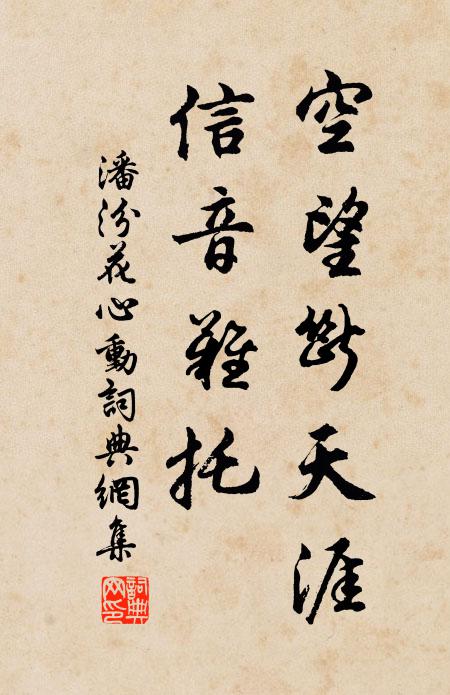 空望斷天涯
信音難托
潘汾花心動詞典網集
詞典網印